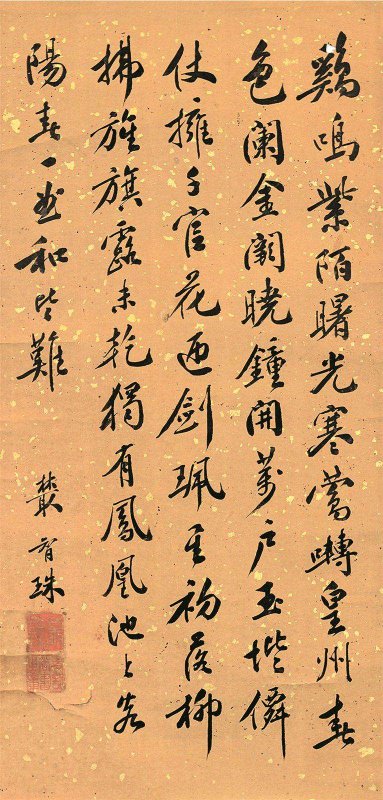 鷄鳴紫陌曙光寒鶯囀皇州春
色闌金闕曉鐘開萬戶玉堦僊
仗擁千官花迎劍珮星初落柳
拂旌旗露未乾獨有鳳凰池上客
陽春一曲和皆難
珠